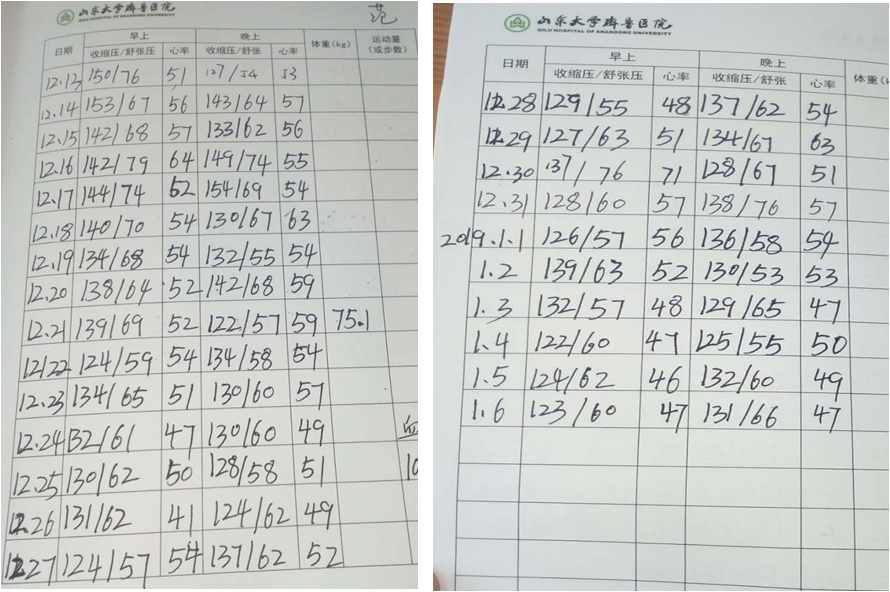 山东大学齐鲁医院
QILU HOSPITAL OF SHANDONG UNIVERSITY
范
日期 早上 晚上 体重(kg) 运动量(或步数)
收缩压/舒张压 心率 收缩压/舒张 心率
12.13 150/76 51 127/54 53
12.14 153/67 56 143/64 57
12.15 142/68 57 133/62 56
12.16 142/79 64 149/74 55
12.17 144/74 62 154/69 54
12.18 140/70 54 130/67 63
12.19 134/68 54 132/55 54
12.20 138/64 52 142/68 59
12.21 139/69 52 122/57 59 75.1
12/22 124/59 54 134/58 54
12.23 134/65 51 130/60 57
12.24 132/61 47 130/60 49
12.25 130/62 50 128/58 51 10
12.26 131/62 41 124/62 49
12.27 124/57 54 137/62 52
山东大学齐鲁医院
QILU HOSPITAL OF SHANDONG UNIVERSITY
日期 早上 晚上 体重(k
收缩压/舒张压 心率 收缩压/舒张压 心率
12.28 129/55 48 137/62 54
12.29 127/63 51 134/67 63
12.30 137/76 71 128/67 51
12.31 128/60 57 138/76 57
2019.1.1 126/57 56 136/58 54
1.2 139/63 52 130/53 53
1.3 132/57 48 129/65 47
1.4 122/60 47 125/55 50
1.5 124/62 46 132/60 49
1.6 123/60 47 131/66 47